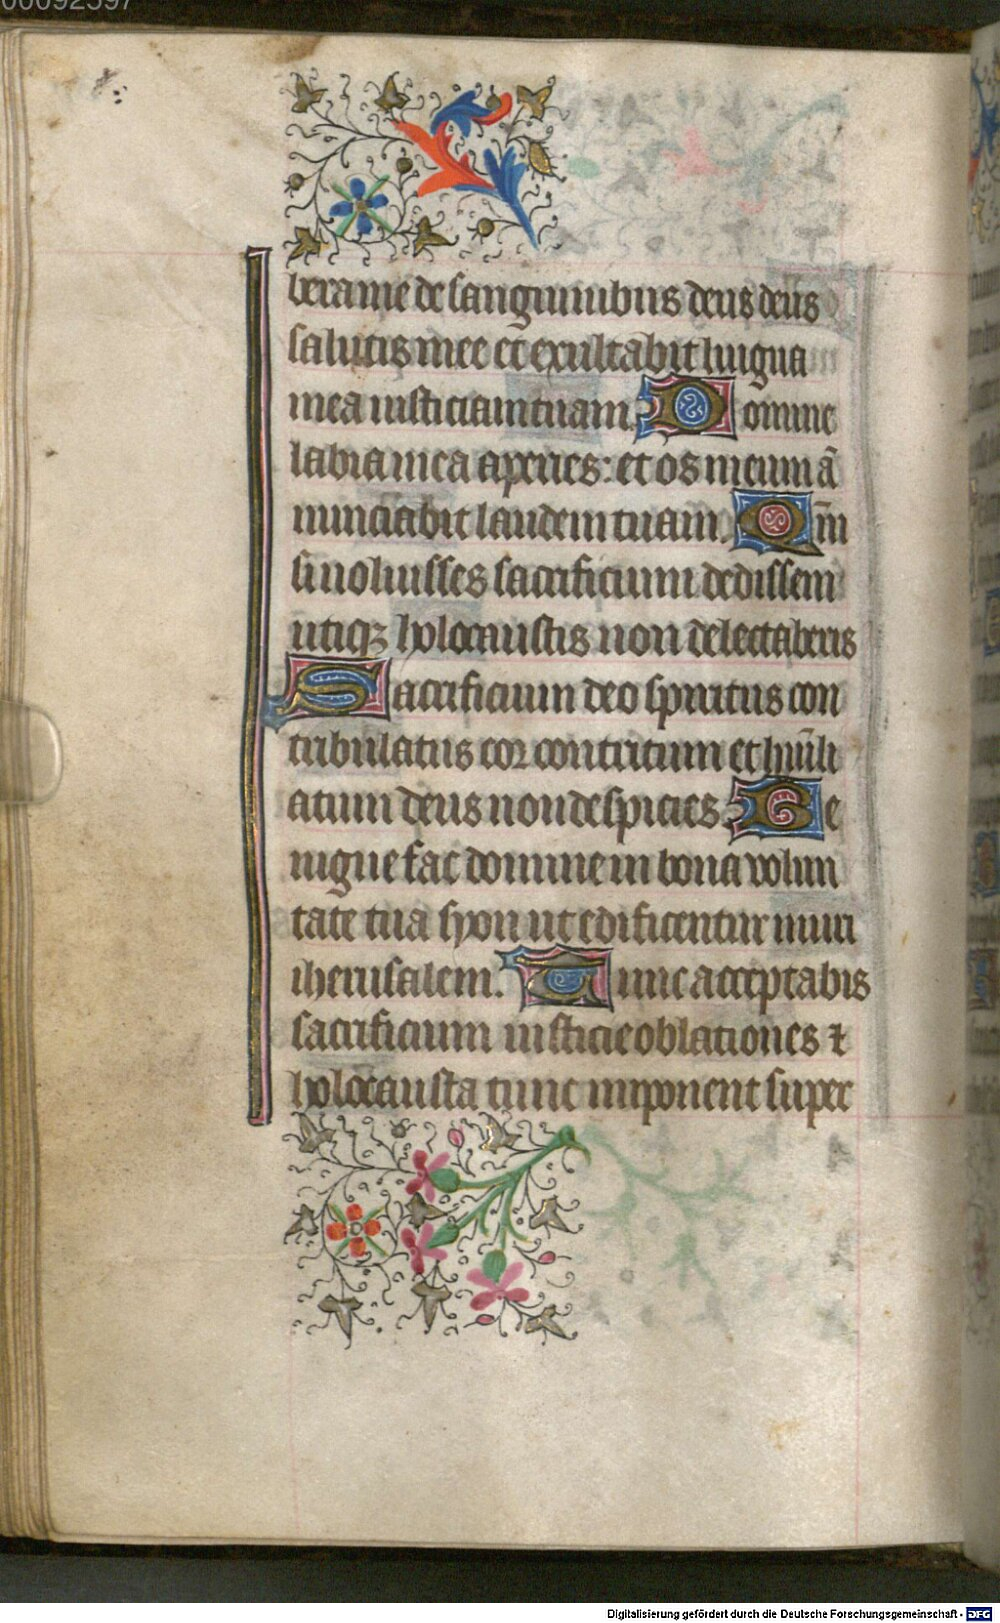 00092597
bera me de sanguinibus deus deus
salutis mee et exultabit lingua
mea iusticiam tuam. Domine
labia mea aperies: et os meum ā
nunciabit laudem tuam. Qm̄
si uoluisses sacrificium dedissem
utiqꝫ holocaustis non delectaberis
Sacrificium deo spiritus con
tribulatus cor contritum et humi̅li
atum deus non despicies. Be
nigne fac domine in bona volun
tate tua syon ut edificentur muri
iherusalem. Tunc acceptabis
sacrificium iusticie oblationes ⁊
holocausta tunc imponent super
Digitalisierung gefördert durch die Deutsche Forschungsgemeinschaft - DFG